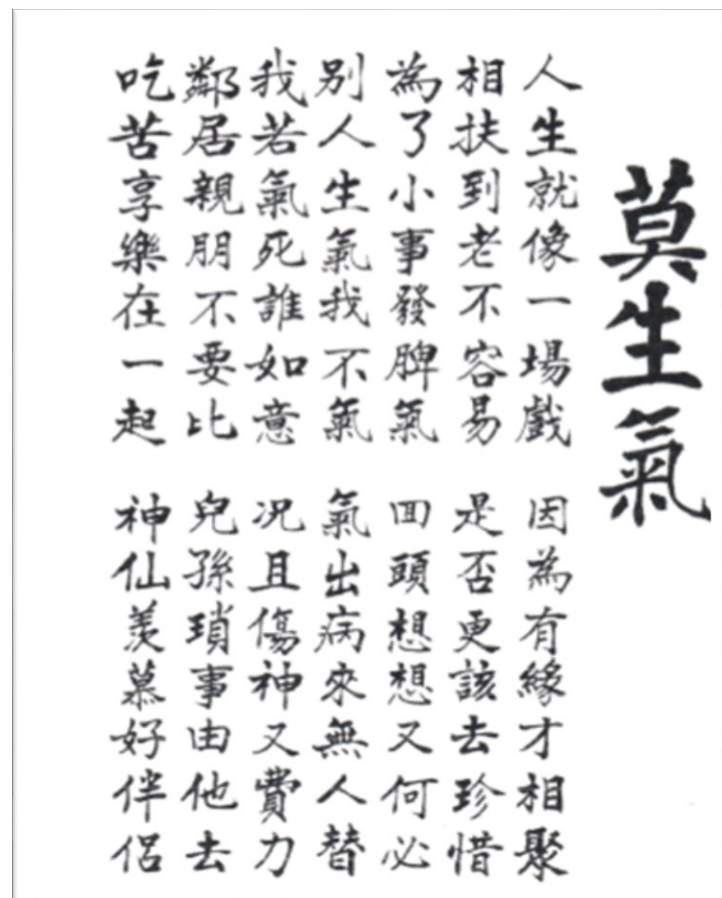 莫生氣
人生就像一場戲 因為有緣才相聚
相扶到老不容易 是否更該去珍惜
為了小事發脾氣 回頭想想又何必
別人生氣我不氣 氣出病來無人替
我若氣死誰如意 况且傷神又費力
鄰居親朋不要比 兒孫瑣事由他去
吃苦享樂在一起 神仙羨慕好伴侶